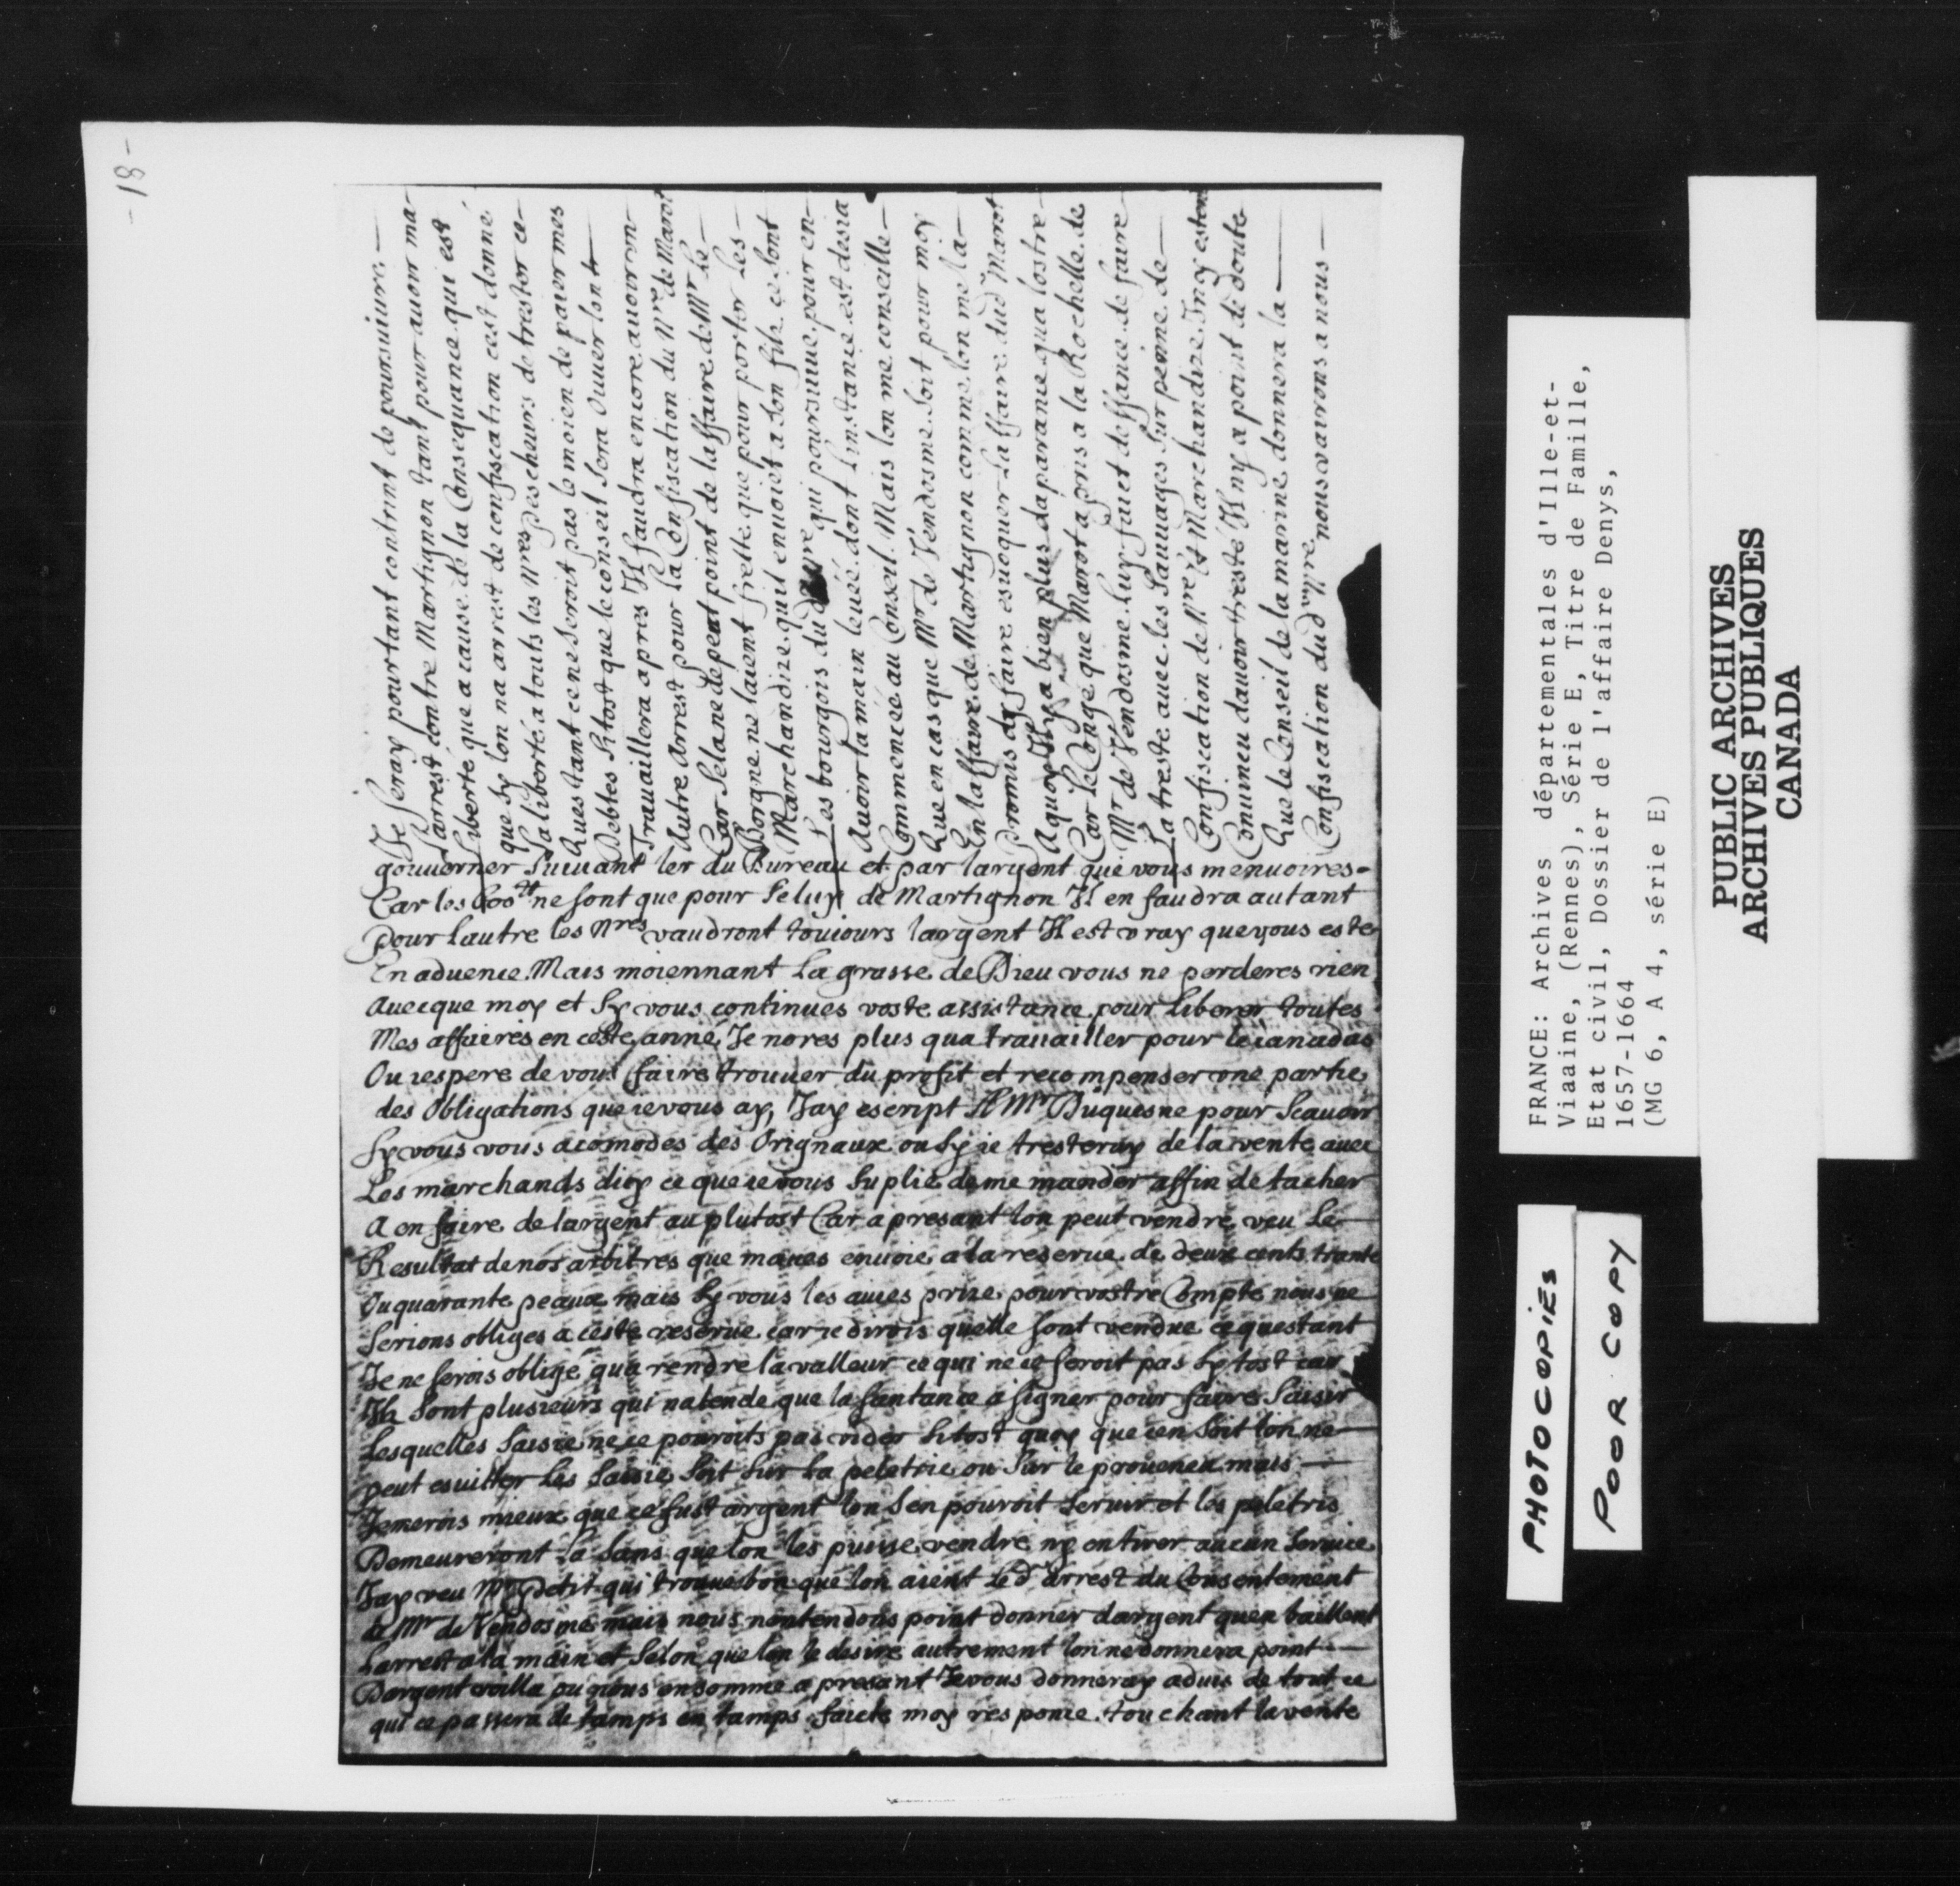 -18-
Je seray pourtant contrint de poursuiure
Larrest contre Martignon tant pour auoir ma
Liberte que a cause de la Consequance qui est
que sy lon na arrest de confiscation cest donné
La liberté a touts les Nres pescheurs de trester ce
Ques tant ce ne seroit pas le moien de paier mes
Debtes Sitost que le conseil sera Ouuer lon
Trauaillera apres Il faudra encore auoir vn
Autre Arrest pour la Confiscation du Nre de Marot
Car Selane depent point de laffaire de Mr Le
Borgne ne laient frette que pour porter Les
Marchandize quil enuoiet a son filz ce sont
Les bourgois dud nre qui poursuiue pour en
Auoir la main leueé dont Linstance est desia
Commenceé au Conseil Mais lon me conseille
Que en cas que Mr de Vendosme soit pour moy
En laffaire de Martignon comme lon me la
Promis de faire esuoquer Laffaire dud Marot
A quoy Il y a bien plus daparance qua lostre
Car Le Conge que Marot a pris a la Rochelle de
Mr de Vendosme Luy faict deffance de faire
La treste auec les Sauuages Sur peinne de
Confiscation de Nre et Marchandize Iny estant
Conuincu dauoir tresté Il ny a point de doute
Que le Conseil de la marine donnera la
Confiscation dud nre nous varons a nous
gouuerner Suiuant ler du Bureau et par largent que vous menuoires
Car les ne sont que pour Seluy de Martignon Il en faudra autant
pour Lautre les nres vaudront touiours largent Il est vray que vous este
En aduence Mais moiennant La grasse de Dieu vous ne perderes rien
Auecque moy et Sy vous continues voste assistance pour Liberer toutes
Mes affaires en ceste anné Je nores plus qua trauailler pour le canadas
Ou iespere de vous faire trouuer du profit et recompenser vne partie
des Obligations que ie vous ay, Jay escript A Mr Duquesne pour Scauoir
Sy vous vous acomodes des Orignaux ou Sy ie tresteray de la vente auec
Les marchands dicy ce que ie vous Suplie de me mander affin de tacher
A en faire de largent au plutost Car a presant lon peut vendre veu Le
Resultat de nos arbitres que maues enuoie a la reserue de deux cents trante
Ou quarante peaux mais Sy vous les auies prize pour vostre Compte nous ne
Serions obliges a ceste reserue car ie dirois quelle sont vendue ce questant
Je ne serois obligé qua rendre la valleur ce qui ne ce feroit pas Sy tost car
Ilz Sont plusieurs qui natende que la santance a signer pour faire Saisir
Lesquelles Saisie ne ce pouroits pas vider Sitost quoy que cen Soit lon ne
peut esuitter Les Saisie Soit Sur La peletrie ou Sur le proueneu mais
Jemerois mieux que ce fust argent lon Sen pouroit Seruir et les peletris
Demeureront La Sans que lon les puisse vendre ny en tirer aucun Seruice
Jay veu Mr petit qui trouue bon que lon aient Le d arrest du Consentement
de Mr de Vendosme mais nous nentendons point donner dargent quen baillent
Larrest a la main et Selon que lon le desire autrement lon ne donnera point
Dargent voilla ou nous en somme a presant Je vous donneray aduis de tout ce
qui ce passera de tamps en tamps faicte moy responce touchant la vente
FRANCE: Archives départementales d'Ille-et-
Viaaine, (Rennes), Série E, Titre de Famille,
Etat civil, Dossier de l'affaire Denys,
1657-1664
(MG 6, A 4, série E)
PUBLIC ARCHIVES
ARCHIVES PUBLIQUES
CANADA
PHOTOCOPIES
POOR COPY